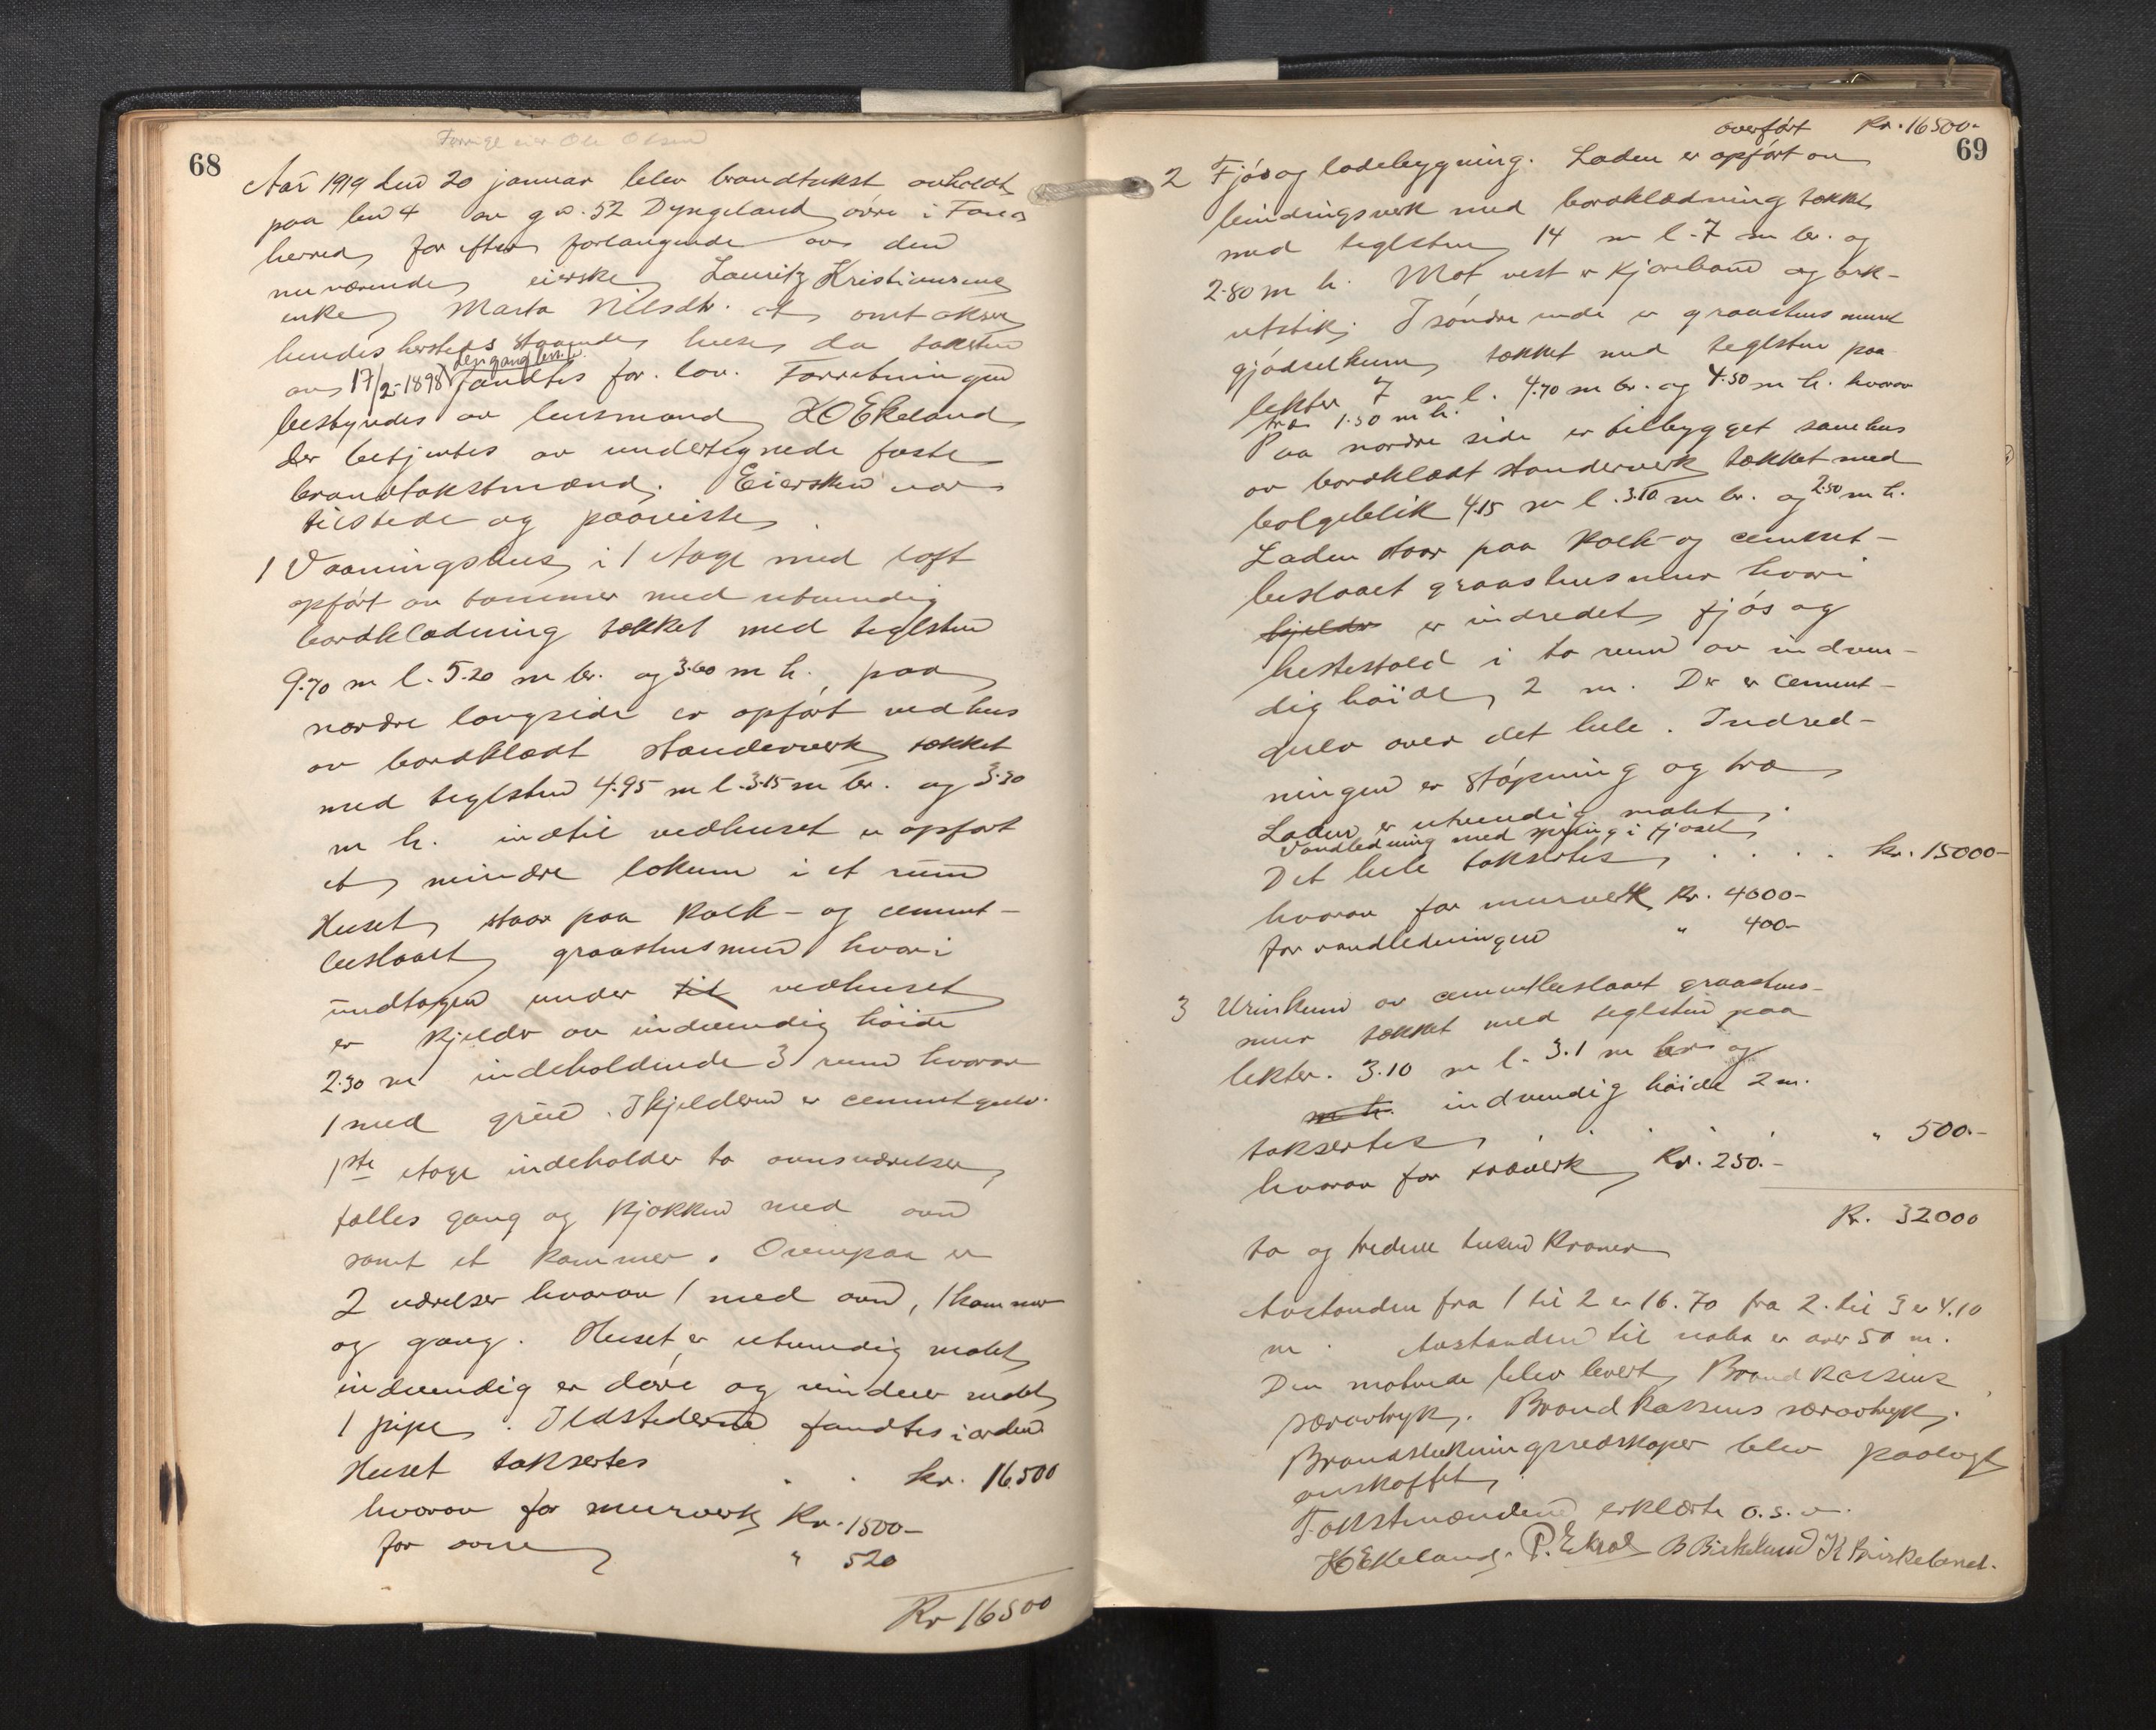 Forrige eier Ole Olsen
68
Aar 1919 den 20 januar blev brandtakst avholdt
paa bno 4 av g no. 52 Dyngeland øvre i Fana
herred for efter forlangende av den
nuværende eierske Lauritz Kristiansens
enke Marta Nilsdtr. at omtaksere
hendes hersteds staaende huse, da taksten
av 17/2-1898 dengang br.n. fandtes for lav. Forretningen
bestyredes av lensmand H O Ekeland
der betjentes av undertegnede faste
brandtakstmænd. Eiersken var
tilstede og paaviste.
1 Vaaningshus i 1 etage med loft
opført av tømmer med utvendig
bordklædning tækket med teglsten
9.70 m l. 5.20 m br. og 3.60 m h. paa
nordre langside er opført vedhus
av bordklædt standerverk tækket
med teglsten 4.95 m l. 3.15 m br. og 3.30
m h. indtil vedhuset er opført
et mindre lokum i et rum
Huset staar paa kalk- og cement-
beslaaet graastensmur hvori
undtagen under til vedhuset
er kjelder av indvendig høide
2.30 m indeholdende 3 rum hvorav
1 med grue. I kjelderen er cementgulv.
1ste etage indeholder to ovnsværelser,
fælles gang og kjøkken med ovn
samt et kammer. Ovenpaa er
2 værelser hvorav 1 med ovn, 1 kammer
og gang. Huset er utvendig malt,
indvendig er døre og vinduer malt,
1 pipe. Ildstederne fandtes i orden
Huset taksertes . . kr. 16500
hvorav for murverk Kr. 1500-
for ovne " 520
Kr 16500
overført Kr. 16500-
69
2 Fjøs og ladebygning. Laden er opført av
bindingsverk med bordklædning tækket
med teglsten 14 m l. 7 m br. og
2.80 m h. Mot vest er kjørebane og ark-
utstik. I søndre ende er graastens muret
gjødselkum, tækket med teglsten paa
lekter 7 m l. 4.70 m br. og 4.50 m h. hvorav
træ 1.50 m h.
Paa nordre side er tilbygget sauehus
av bordklædt standerverk tækket med
bølgeblik 4.15 m l. 3.10 m br. og 2.50 m h.
Laden staar paa kalk- og cement-
beslaaet graastensmur hvori
kjelder er indredet fjøs og
hestestald i to rum av indven-
dig høide 2 m. Der er cement-
gulv over det hele. Indred-
ningen er støpning og træ
Laden er utvendig malet.
Vandledning med spring i fjøset
Det hele taksertes . . . . kr. 15000-
hvorav for murverk Kr. 4000-
for vandledningen " 400-
3 Urinkum av cementbeslaaet graastens-
mur tækket med teglsten paa
lekter. 3.10 m l. 3.1 m br. og
m h. indvendig høide 2 m.
taksertes . . . . " 500.-
hvorav for træverk Kr. 250.-
Kr. 32000
to og tredeve tusen kroner
Avstanden fra 1 til 2 er 16.70 fra 2. til 3 er 4.10
m. Avstanden til nabo er over 50 m.
Den møtende blev levert Brandkassens
særavtryk. Brandkassens særavtryk.
Brandslukningsredskaper blev paalagt
anskaffet.
Takstmændene erklærte o.s.v.
H O Ekeland. P. Ekrol B Birkeland K Birkeland.